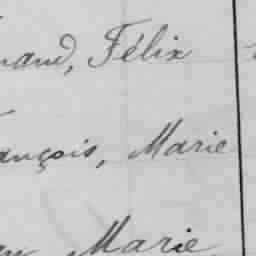 nand, Félix
ançois, Marie
Marie